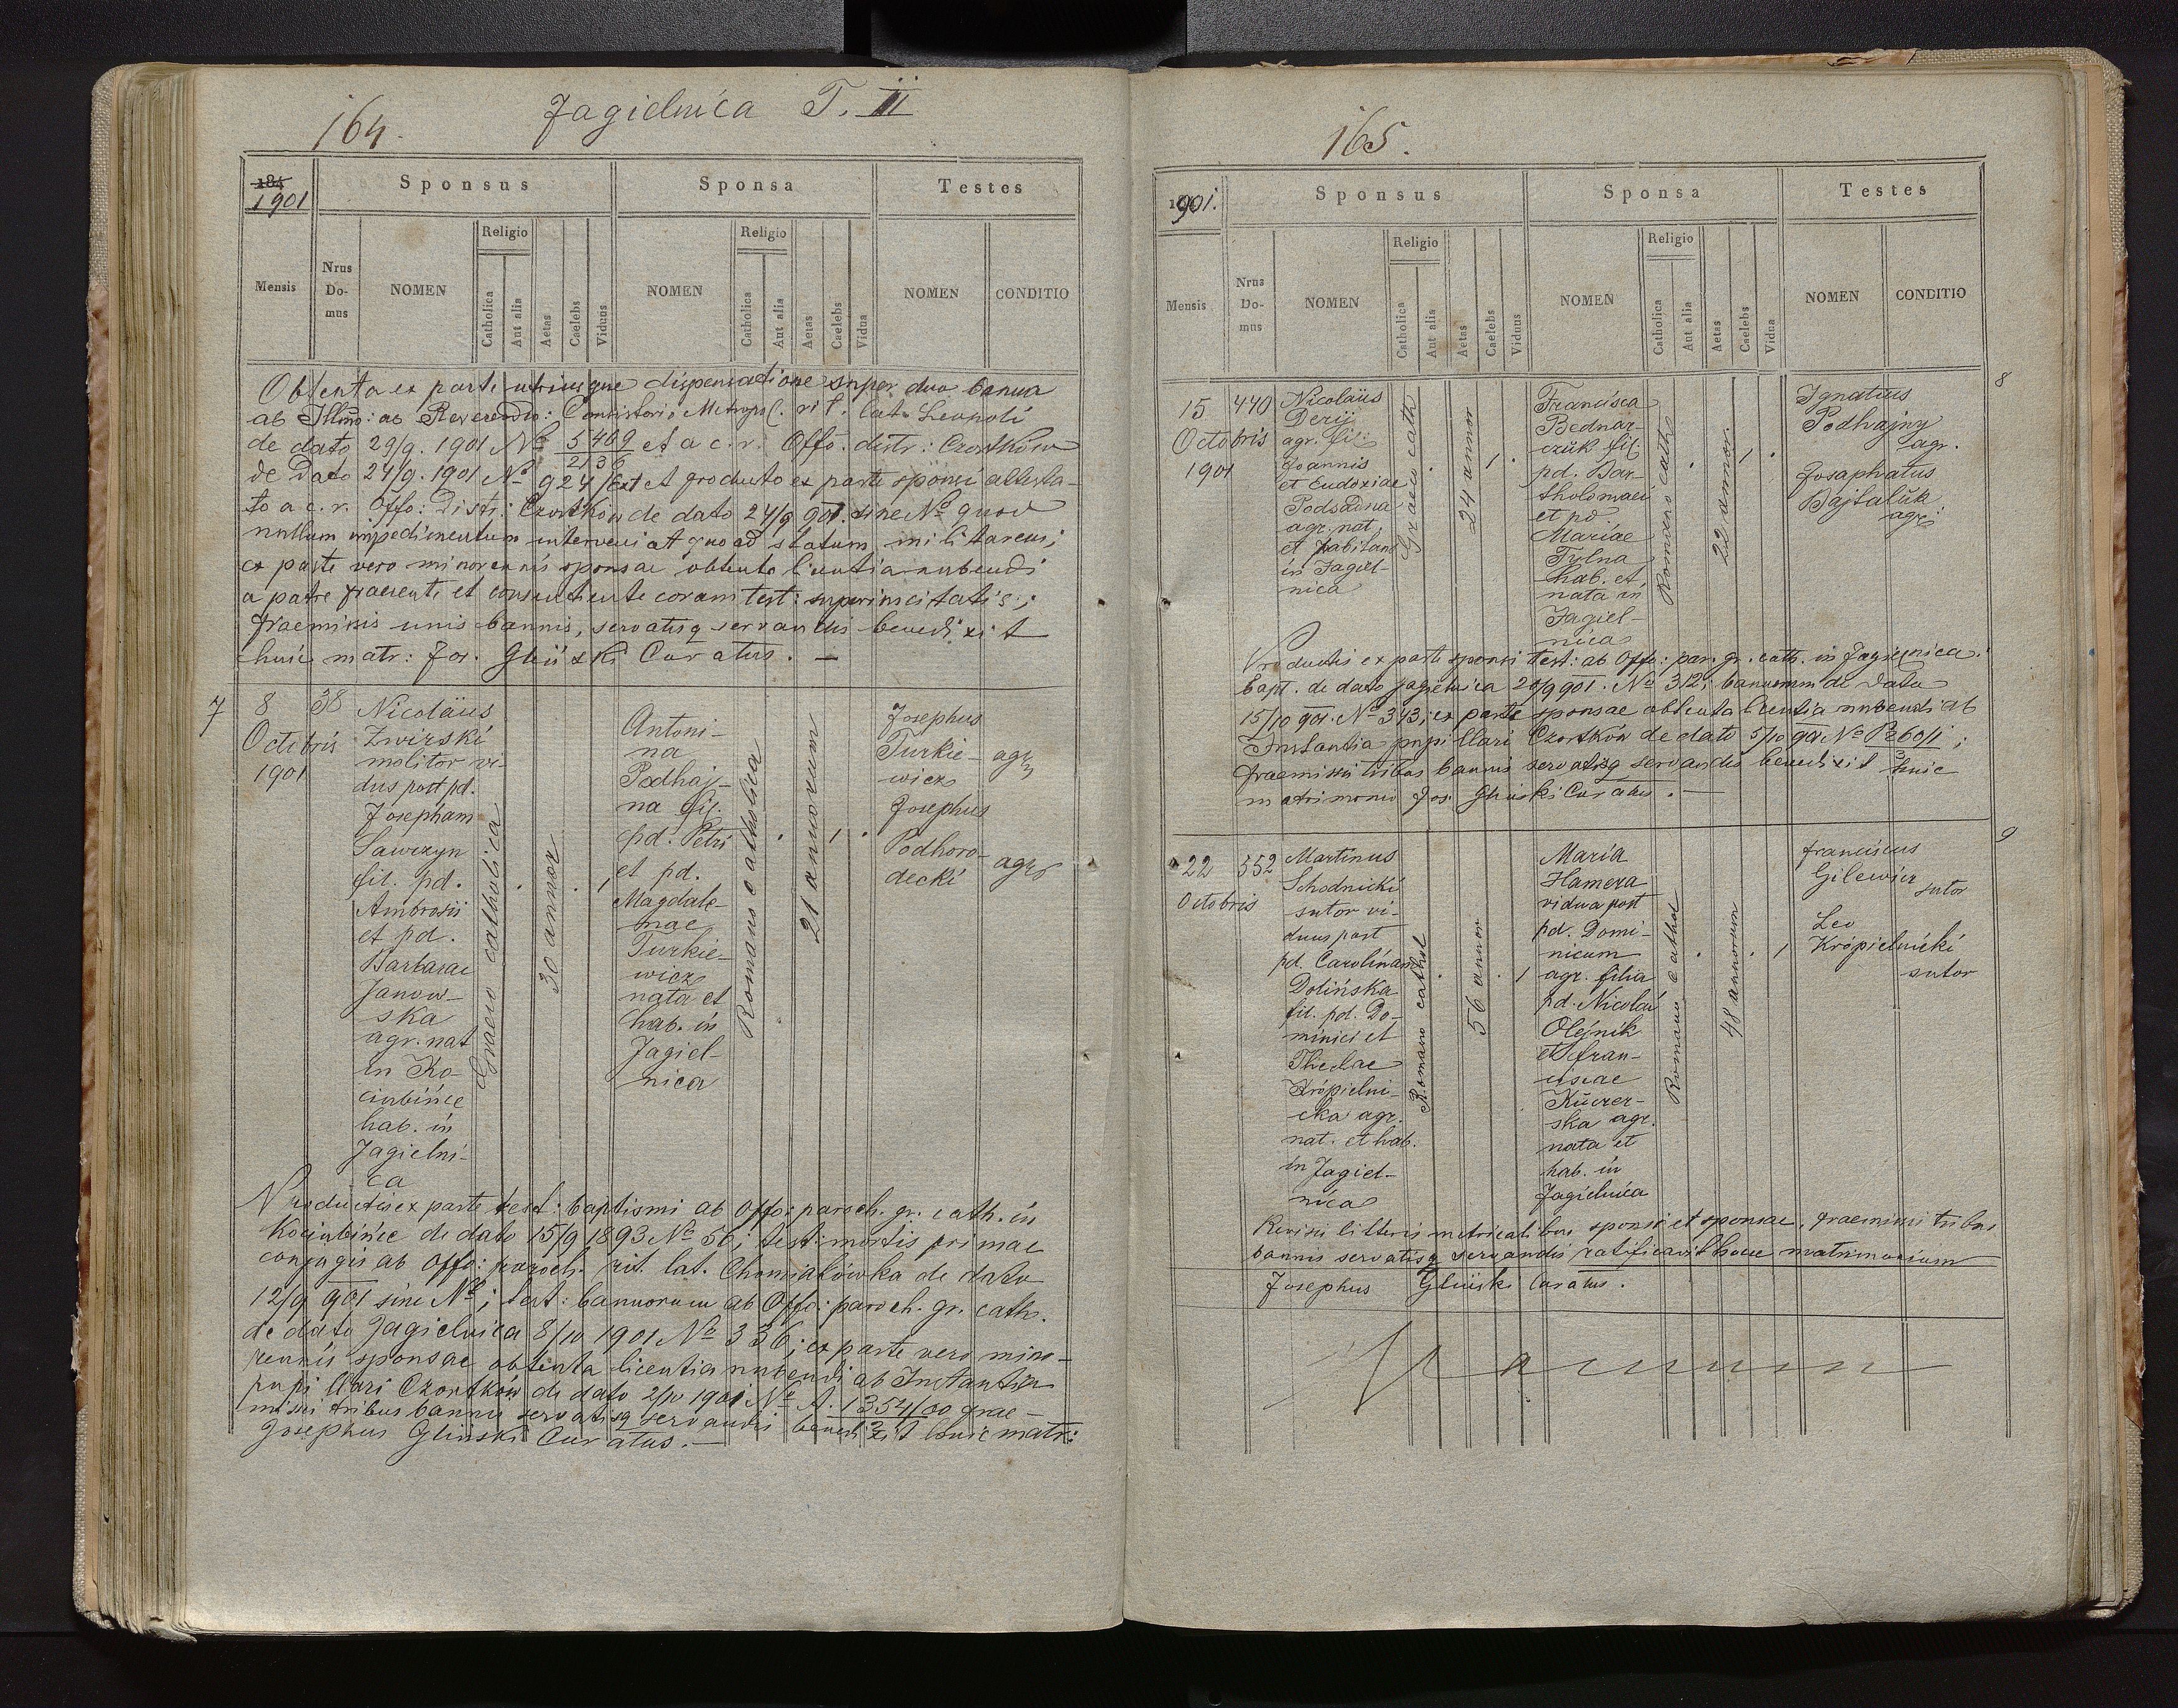 164.
Jagielnica T. II
184
1901
Sponsus
Sponsa
Testes
Mensis
Nrus Do-mus
NOMEN
Religio
Catholica
Aut alia
Aetas
Caelebs
Viduus
NOMEN
Religio
Catholica
Aut alia
Aetas
Caelebs
Vidua
NOMEN
CONDITIO
Obtenta ex parte utriusque dispensatione super duo banna
ab Illmo: ac Reverendo: Consistorio Metropol. rit. lat. Leopoli
de dato 29/9. 1901 No 5409/2136 et a c. r. Offo. distr: Czortków
de Dato 24/9. 1901 No 924/Ext et producto ex parte sponsi attesta-
to a c. r. Offo: Distr: Czortków de dato 24/9 901. sine No quod
nullum impedimentum interveniat quoad statum militarem;
ex parte vero minorennis sponsae obtenta licentia nubendi
a patre praesente et consentiente coram test:
praemissis unis bannis, servatisq servandis benedixit
huic matr: Jos. Gliński Curatus. —
7
8
Octobris
1901
38
Nicoläus
Zwirski
molitor vi-
dus post pd.
Josepham
Sawczyn
fil. pd.
Ambrosii
et pd.
Barbarae
Janow-
ska
agr. nat
in Ko-
ciubińce
hab. in
Jagielni-
ca
Graeco catholica
30 annor
1
Antoni-
na
Podhaj-
na fil.
pd. Petri
et pd.
Magdale-
nae
Turkie-
wicz
nata et
hab. in
Jagiel-
nica
Romano catholica
21 annorum
1
Josephus
Turkie-
wicz
agr
Josephus
Podhoro-
decki
agr
Productis ex parte test: baptismi ab Offo: paroch. gr. cath. in
Kociubińce de dato 15/9 1893 No 56; test: mortis primae
conjugis ab Offo: paroch. rit. lat. Chomiakówka de dato
12/9 901 sine No; test: bannorum ab Offo: paroch. gr. cath.
de dato Jagielnica 8/10 1901 No 336; ex parte vero mino-
rennis sponsae obtenta licentia nubendi ab Instantia
pupillari Czortków de dato 2/10 1901 No A. 1354/00 prae-
3
missis tribus bannis servatisq servandis benedixit huic matr:
Josephus Gliński Curatus. —
165.
1901.
Sponsus
Sponsa
Testes
Mensis
Nrus Do-mus
NOMEN
Religio
Catholica
Aut alia
Aetas
Caelebs
Viduus
NOMEN
Religio
Catholica
Aut alia
Aetas
Caelebs
Vidua
NOMEN
CONDITIO
8
15
Octobris
1901
440
Nicoläus
Derij
agr. fil:
Joannis
et Eudoxiae
Podsadna
agr. nat.
et habitans
in Jagiel-
nica
Graeco cath
24 annor
1
Francisca
Bednar-
czŭk fil:
pd. Bar-
tholomaei
et pd
Mariae
Trilna
hab. et
nata in
Jagiel-
nica
Romano cath
22 annor.
1
Ignatius
Podhajny
agr.
Josaphatus
Bajtalŭk
agr:
Productis ex parte sponsi test: ab Offo: par. gr. cath. in Jagielnica:
bapt. de dato Jagielnica 20/9 901. No 312; bannorum de dato
15/10 901. No 343; ex parte sponsae obtenta licentia nubendi ab
Instantia pupillari Czortków de dato 5/10 901 No P 260/1;
3
praemissis tribus bannis servatisq servandis benedixit huic
matrimonio Jos. Gliński Curatus. —
9
22
Octobris
552
Martinus
Schodnicki
sutor vi-
duus post
pd. Carolinam
Dolińska
fil. pd. Do-
minici et
Theclae
Krópielni-
cka agr.
nat. et hab.
in Jagiel-
nica
Romano cathol
56 annor
1
Maria
Hamera
vidua post
pd. Domi-
nicum
agr. filia
pd. Nicolai
Olejnik
et Fran-
ciscae
Kŭczer-
ska agr.
nata et
hab. in
Jagielnica
Romano cathol
48 annorum
1
Franciscus
Gilewicz
sutor
Leo
Krópielnicki
sutor
Revisis litteris metricalibus sponsi et sponsae, praemissis tribus
bannis servatisq servandis ratificavit hocce matrimonium
Josephus Gliński Curatus.